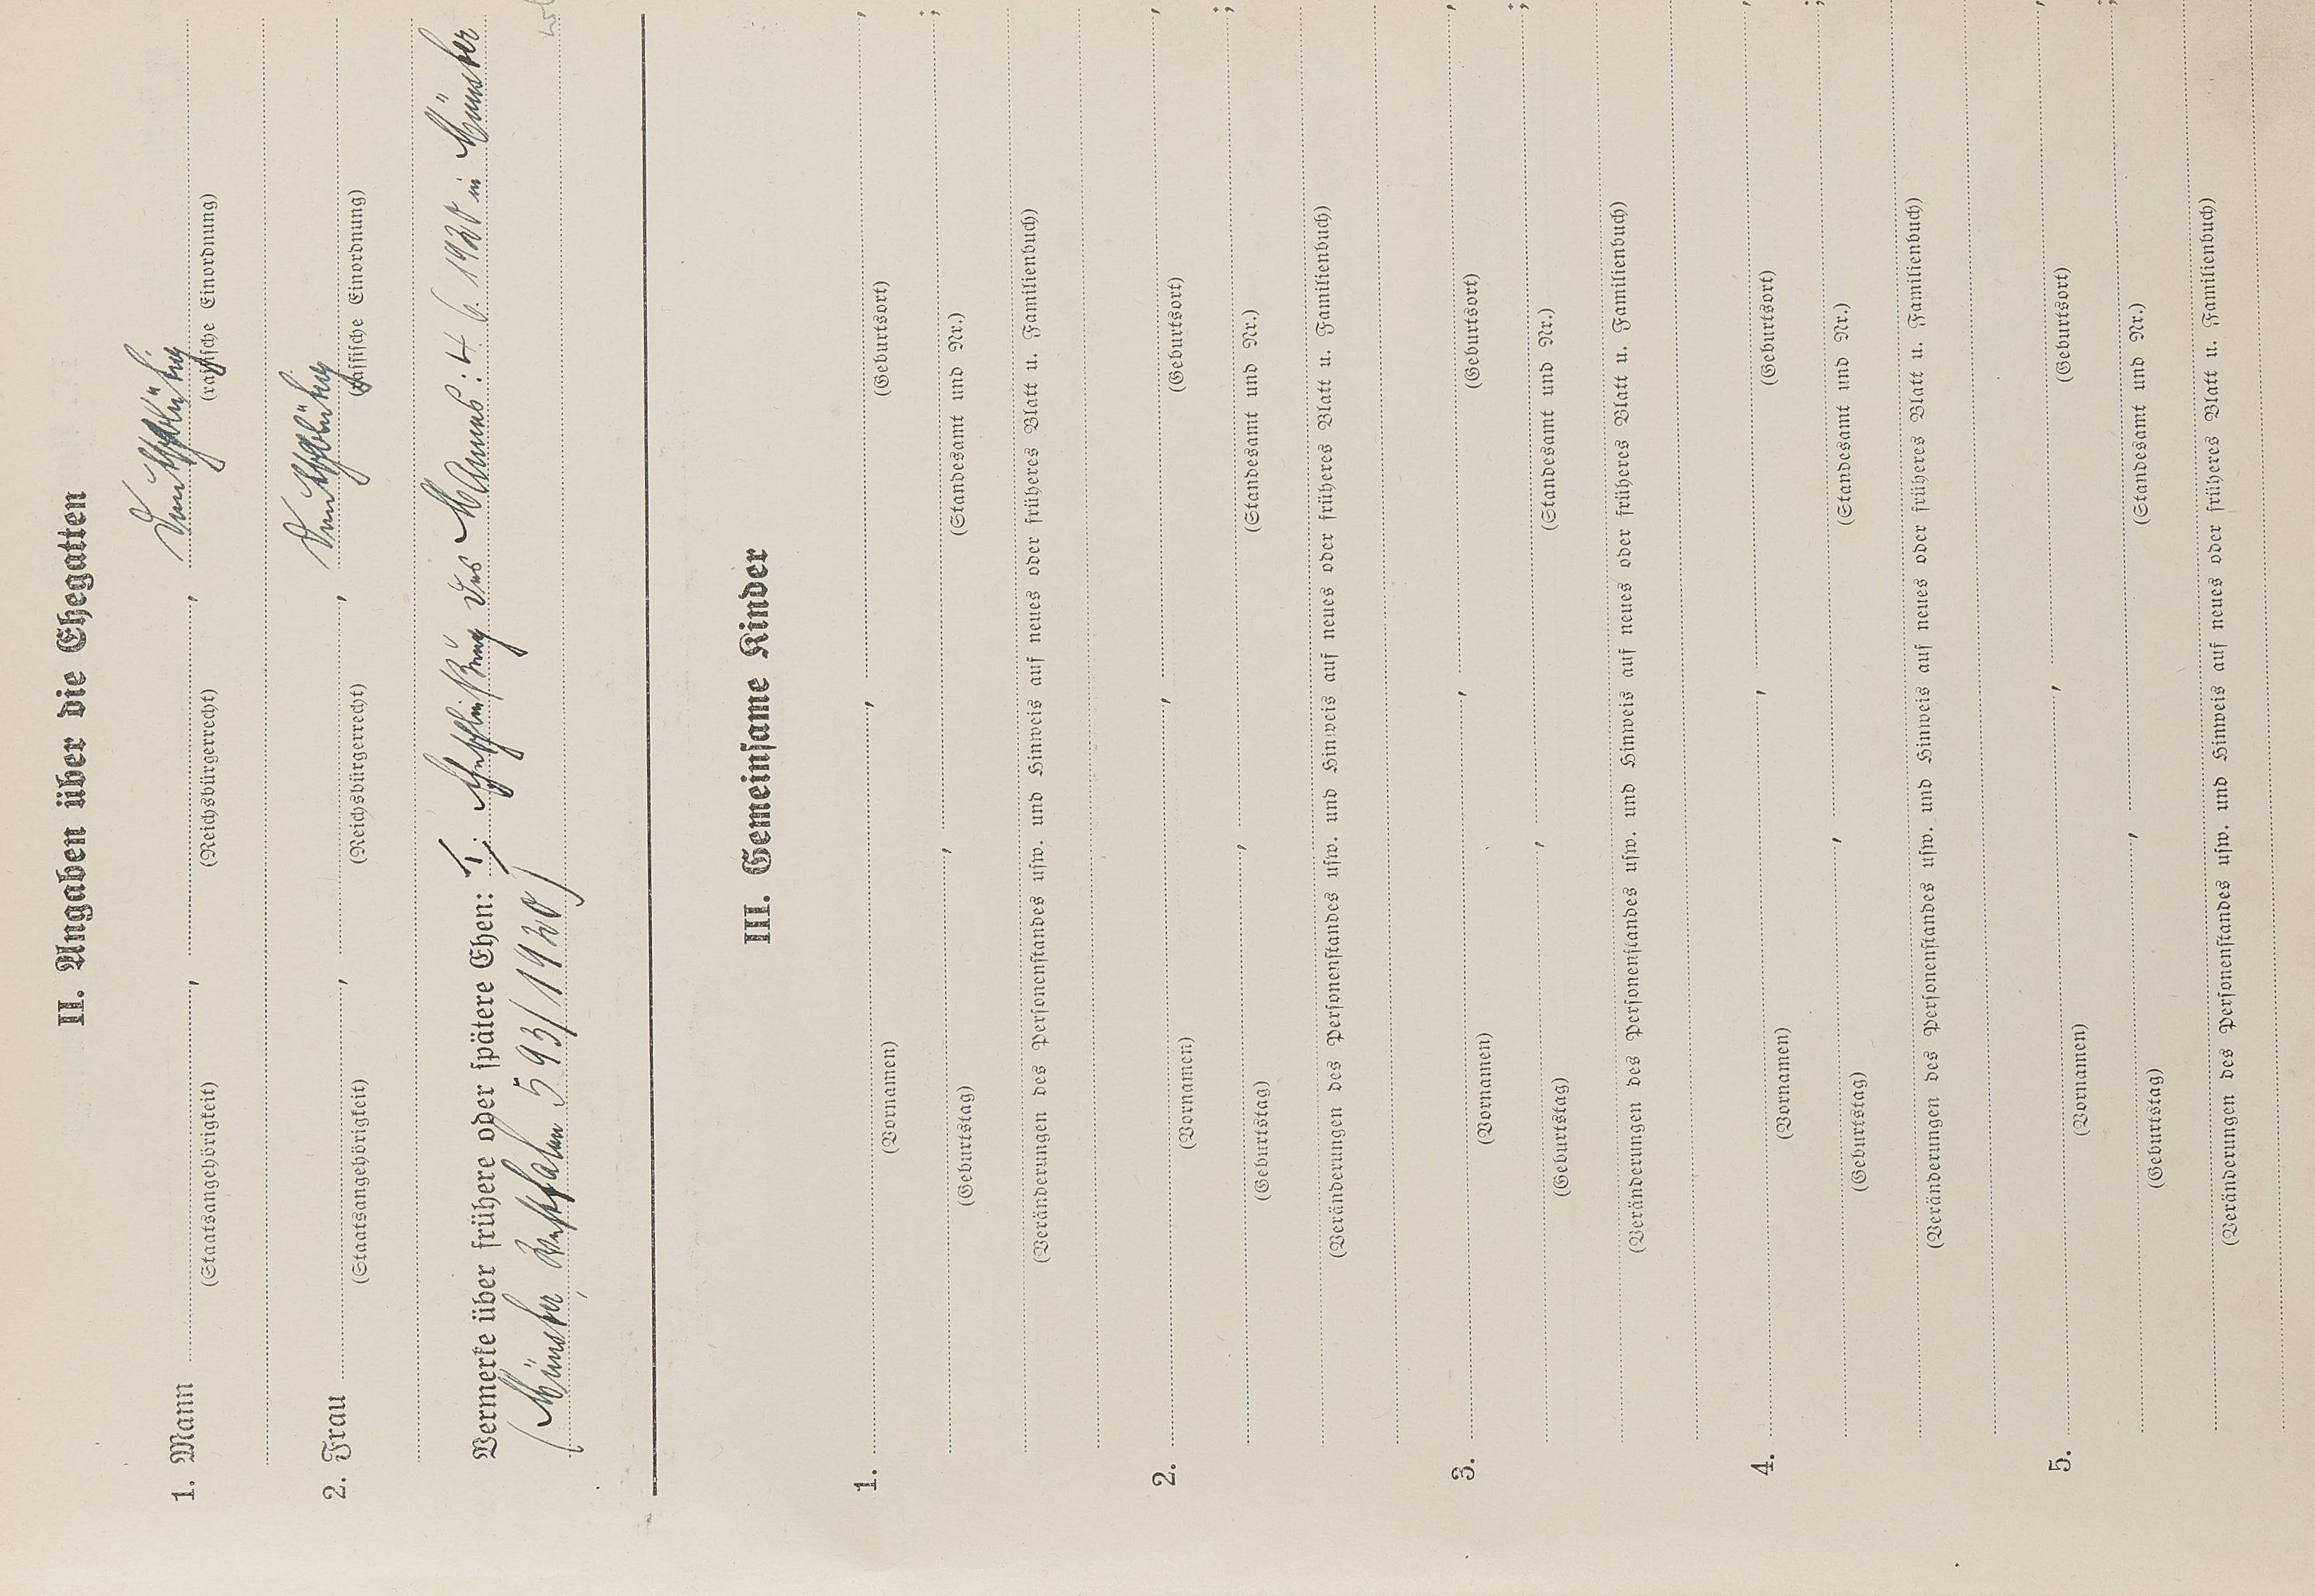 II. Angaben über die Ehegatten
1. Mann , , deutschblütig
(Staatsangehörigkeit) (Reichsbürgerrecht) (rassische Einordnung)
2. Frau , , deutschblütig
(Staatsangehörigkeit) (Reichsbürgerrecht) (rassische Einordnung)
Vermerke über frühere oder spätere Ehen: I. Eheschließung des Mannes: 4. 6. 1920 in Münster
(Münster, Westfalen 593/1920)
III. Gemeinsame Kinder
1. , ,
(Vornamen) (Geburtsort)
, ;
(Geburtstag) (Standesamt und Nr.)
(Veränderungen des Personenstandes usw. und Hinweis auf neues oder früheres Blatt u. Familienbuch)
2. , ,
(Vornamen) (Geburtsort)
, ;
(Geburtstag) (Standesamt und Nr.)
(Veränderungen des Personenstandes usw. und Hinweis auf neues oder früheres Blatt u. Familienbuch)
3. , ,
(Vornamen) (Geburtsort)
, ;
(Geburtstag) (Standesamt und Nr.)
(Veränderungen des Personenstandes usw. und Hinweis auf neues oder früheres Blatt u. Familienbuch)
4. , ,
(Vornamen) (Geburtsort)
, ;
(Geburtstag) (Standesamt und Nr.)
(Veränderungen des Personenstandes usw. und Hinweis auf neues oder früheres Blatt u. Familienbuch)
5. , ,
(Vornamen) (Geburtsort)
, ;
(Geburtstag) (Standesamt und Nr.)
(Veränderungen des Personenstandes usw. und Hinweis auf neues oder früheres Blatt u. Familienbuch)